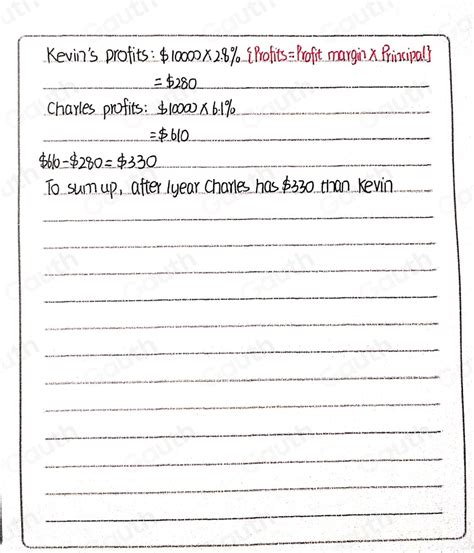 Kevin's profits: $10000 X 2.8% {Profits = Profit margin X Principal}
= $280
Charles profits: $10000 X 6.1%
= $610
$610 - $280 = $330
To sum up, after 1 year Charles has $330 than Kevin